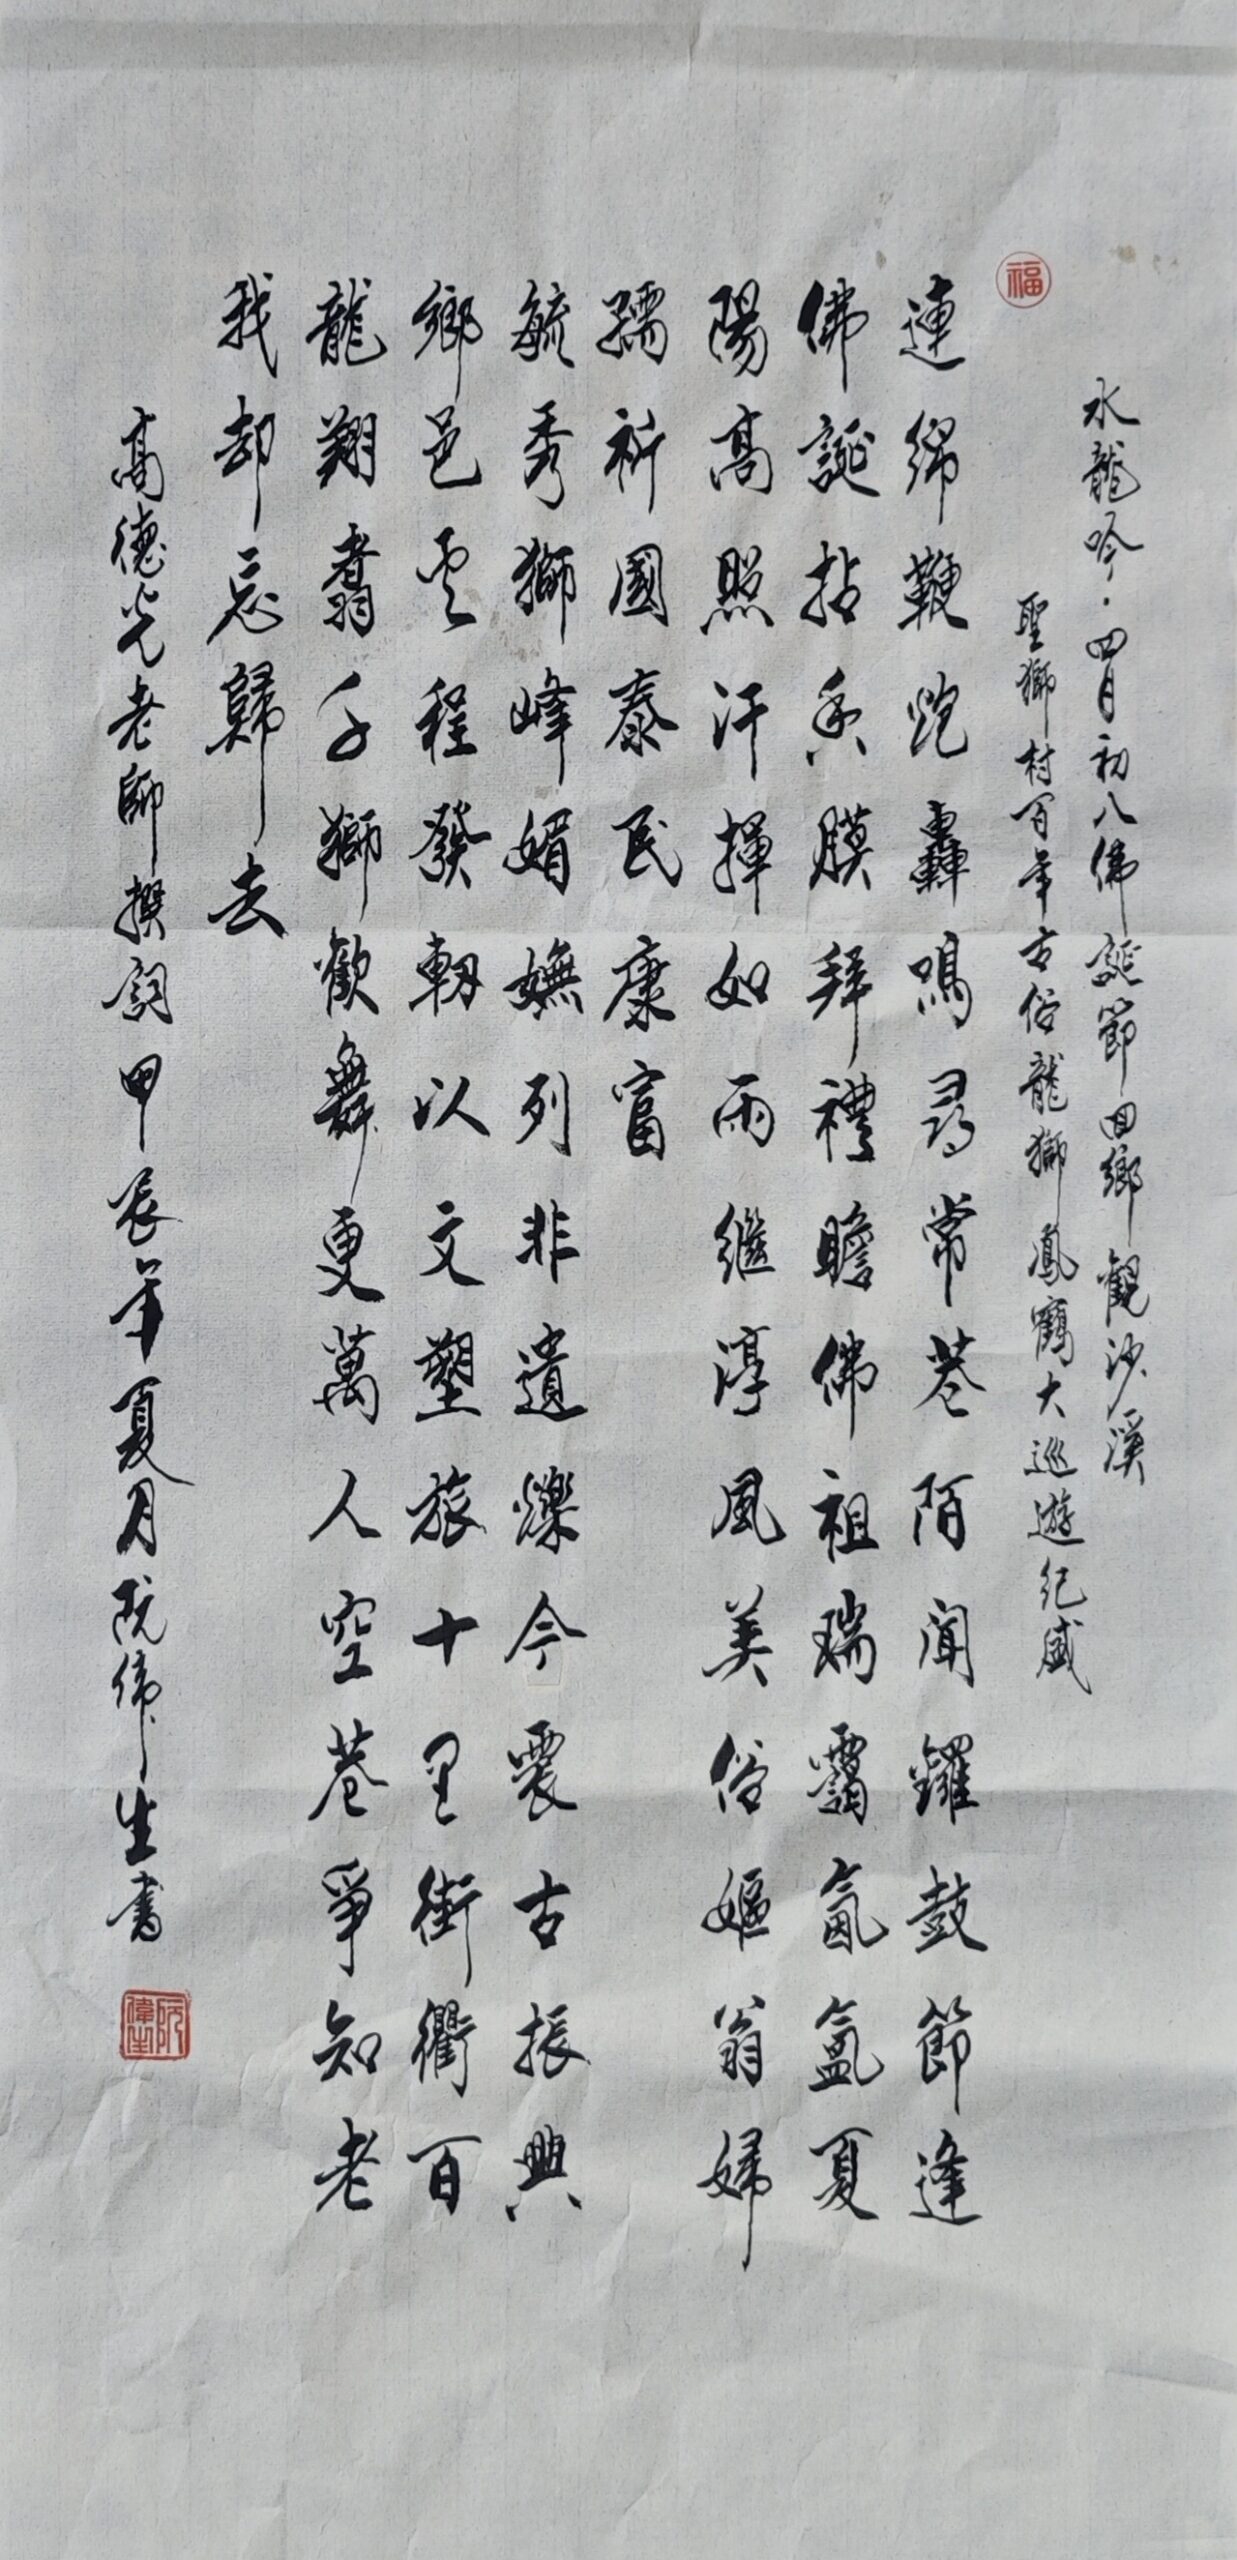 水龍吟·四月初八佛誕節回鄉觀沙溪
聖獅村百年古俗龍獅鳳鶴大巡遊紀盛
福
連綿鞭炮轟鳴尋常巷陌闻鑼鼓節逢
佛誕拈香膜拜禮瞻佛祖瑞靄氤氳夏
陽高照汗揮如雨繼淳風美俗嫗翁婦
孺祈國泰民康富
毓秀獅峰媚嫵列非遺爍今震古振興
鄉邑雲程發軔以文塑旅十里街衢百
龍翔翥千獅歡舞更萬人空巷爭知老
我却忘歸去
高德光老師撰詞甲辰年夏月阮偉生書
阮偉生